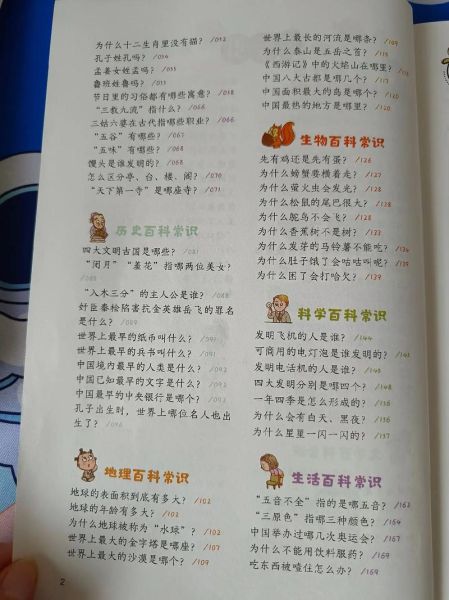 为什么十二生肖里没有猫？ /052
孔子姓孔吗？ /054
孟姜女姓孟吗？ /055
鲁班姓鲁吗？ /055
节日里的习俗都有哪些寓意？ /058
“三教九流”指什么？ /066
三姑六婆在古代指哪些职业？ /066
“五谷”有哪些？ /067
“五味”有哪些？ /068
馒头是谁发明的？ /068
怎么区分亭、台、楼、阁？ /070
“天下第一寺”是哪座寺？ /071
历史百科常识
四大文明古国是哪些？ /081
“闭月”“羞花”指哪两位美女？
/085
“入木三分”的主人公是谁？ /088
奸臣秦桧陷害抗金英雄岳飞的罪名
是什么？ /089
世界上最早的纸币叫什么？ /091
世界上最早的兵书叫什么？ /091
中国境内最早的人类是什么？ /092
中国已知最早的文字是什么？ /092
中国最早的中央银行是哪个？ /092
孔子出生时，世界上哪位名人也出
生了？ /096
地理百科常识
地球的表面积到底有多大？ /102
地球的年龄有多大？ /102
为什么地球被称为“水球”？ /102
世界上最大的金字塔是哪座？ /107
世界上最大的沙漠是哪个？ /109
2
世界上最长的河流是哪条？ /109
为什么泰山是五岳之首？
《西游记》中的火焰山在哪里？
中国八大古都是哪几个？
中国面积最大的岛是哪个？ /120
中国最热的地方是哪里？ /120
生物百科常识
先有鸡还是先有蛋？ /126
为什么螃蟹要横着走？ /127
为什么萤火虫会发光？ /128
为什么松鼠的尾巴很大？ /128
为什么鸵鸟不会飞？ /128
为什么香蕉树不是树？ /133
为什么发芽的马铃薯不能吃？ /134
为什么肚子饿了会咕咕叫呢？ /139
为什么困了会打哈欠？ /139
科学百科常识
发明飞机的人是谁？ /144
可商用的电灯泡是谁发明的？ /145
发明电话机的人是谁？ /145
四大发明分别是哪四个？ /148
一年四季是怎么形成的？ /156
为什么会有白天、黑夜？ /156
为什么星星一闪一闪的？ /157
生活百科常识
“五音不全”指的是哪五音？ /162
“三原色”指哪三种颜色？ /164
中国举办过哪几次奥运会？ /167
为什么不能用饮料服药？ /169
吃东西被噎住怎么办？ /169